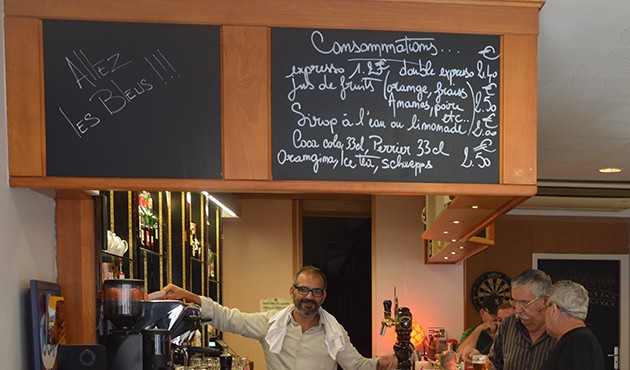 Allez
Les Bleus !!!
Consommations... €
expresso 1.25€ double expresso 2.40
jus de fruits (orange, fraise €
Ananas, poire, 2.50
etc..
Sirop à l'eau ou limonade 2.00
Coca cola, 33cl, Perrier 33cl €
Orangina, Ice tea, schwepps 2.50